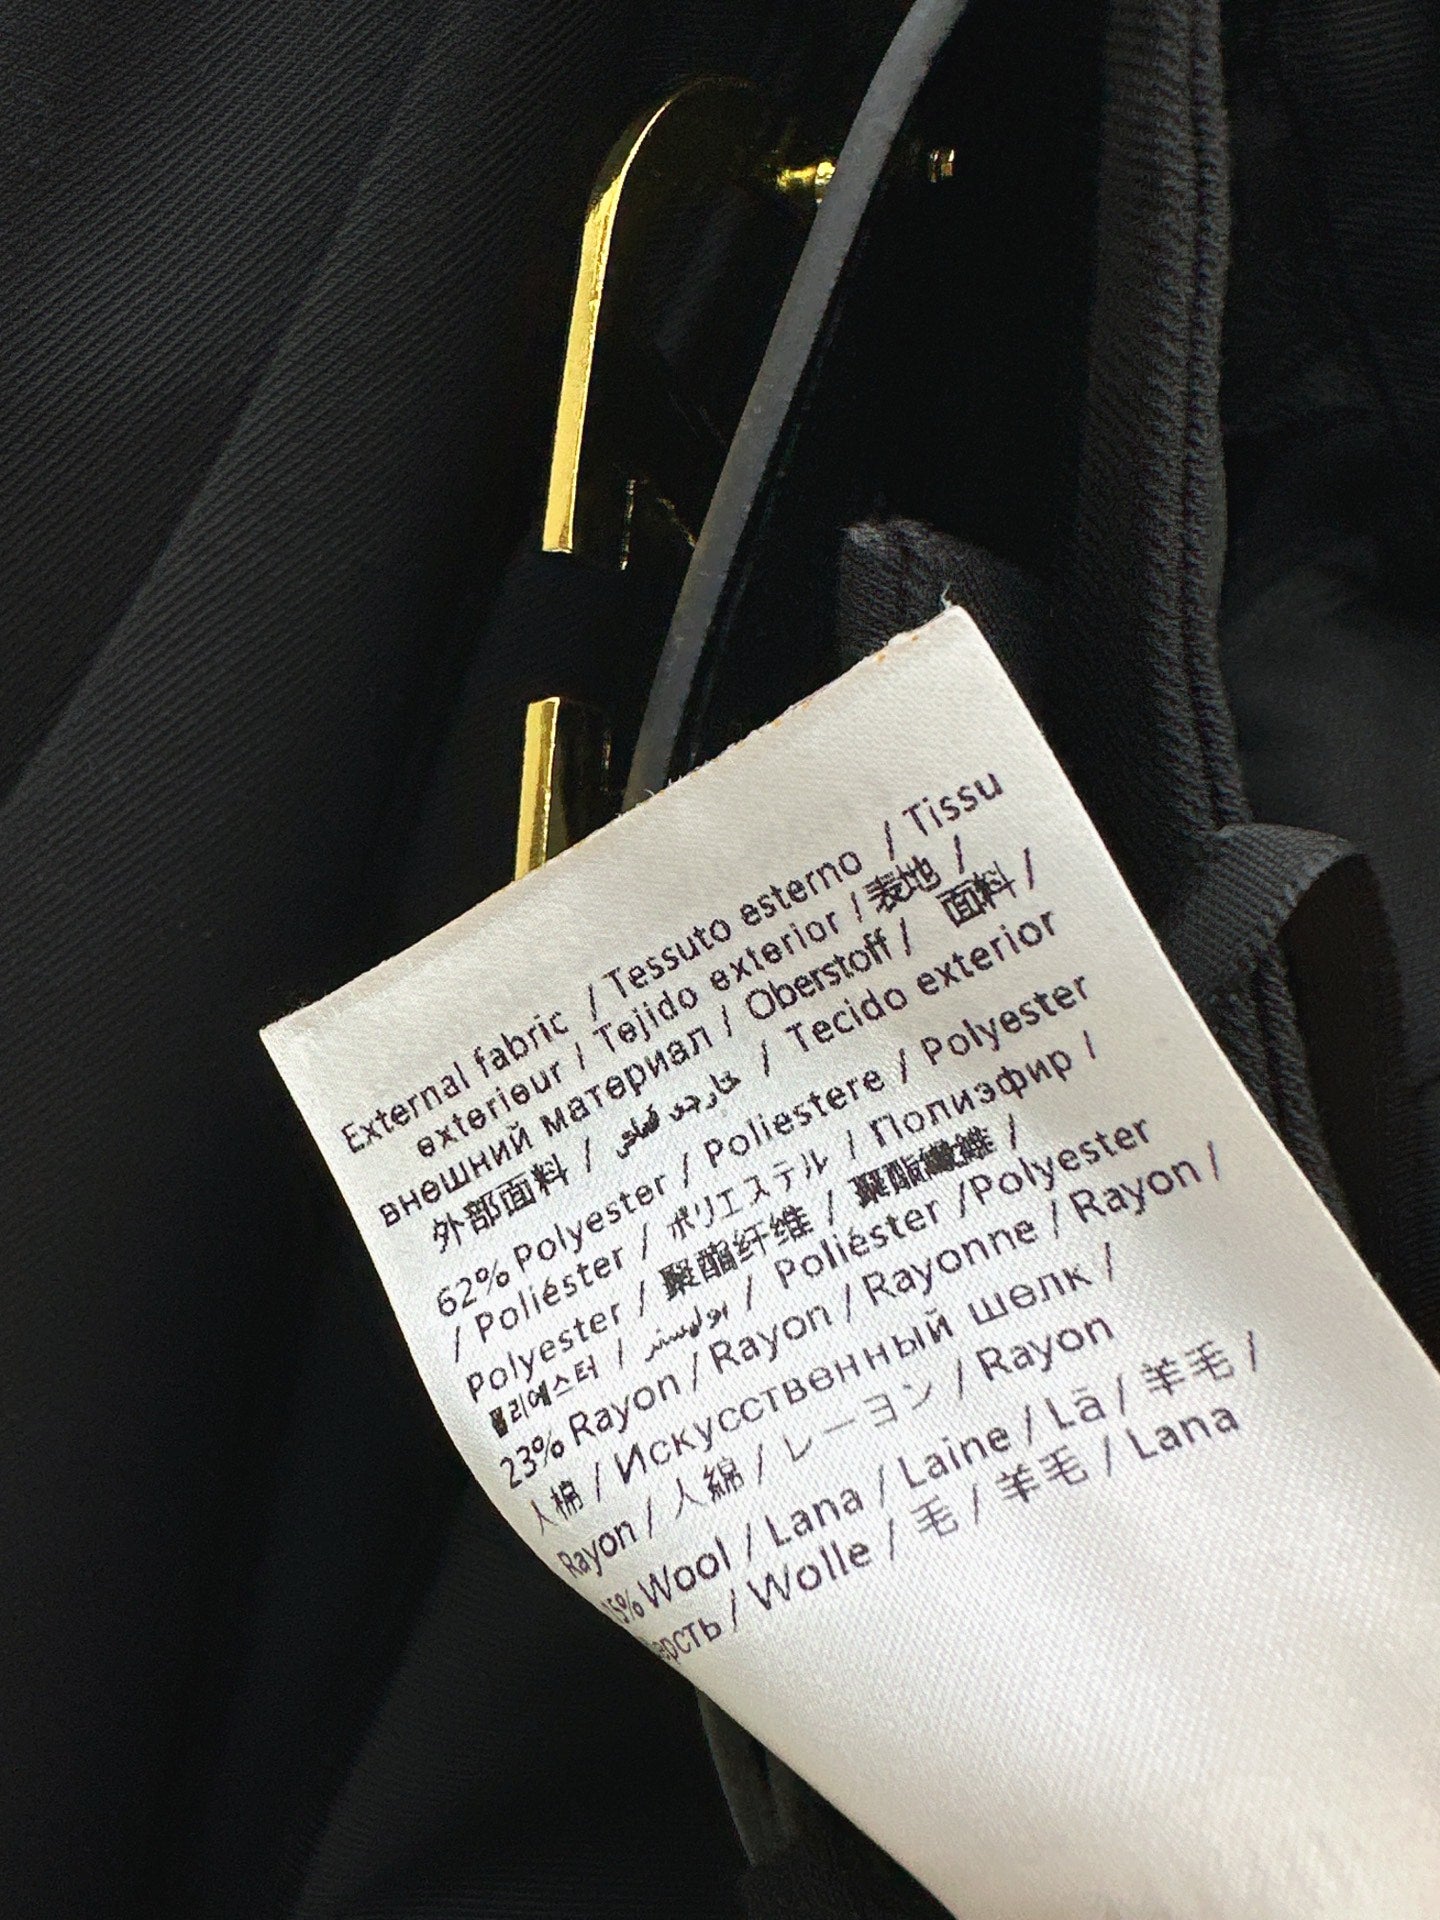 External fabric / Tessuto esterno / Tissu
exterieur / Tejido exterior / 表地 /
внешний материал / Oberstoff / 面料 /
外部面料 / / Tecido exterior
62% Polyester / Poliestere / Polyester
/ Poliéster / ポリエステル / Полиэфир /
Polyester / 聚酯纤维 / 聚酯纖維 /
폴리에스터 / / Poliéster /Polyester
23% Rayon / Rayon / Rayonne / Rayon /
人棉 / Искусственный шелк /
Rayon / 人綿 / レーヨン / Rayon
15% Wool / Lana / Laine / Lã / 羊毛 /
Шерсть / Wolle / 毛 / 羊毛 / Lana